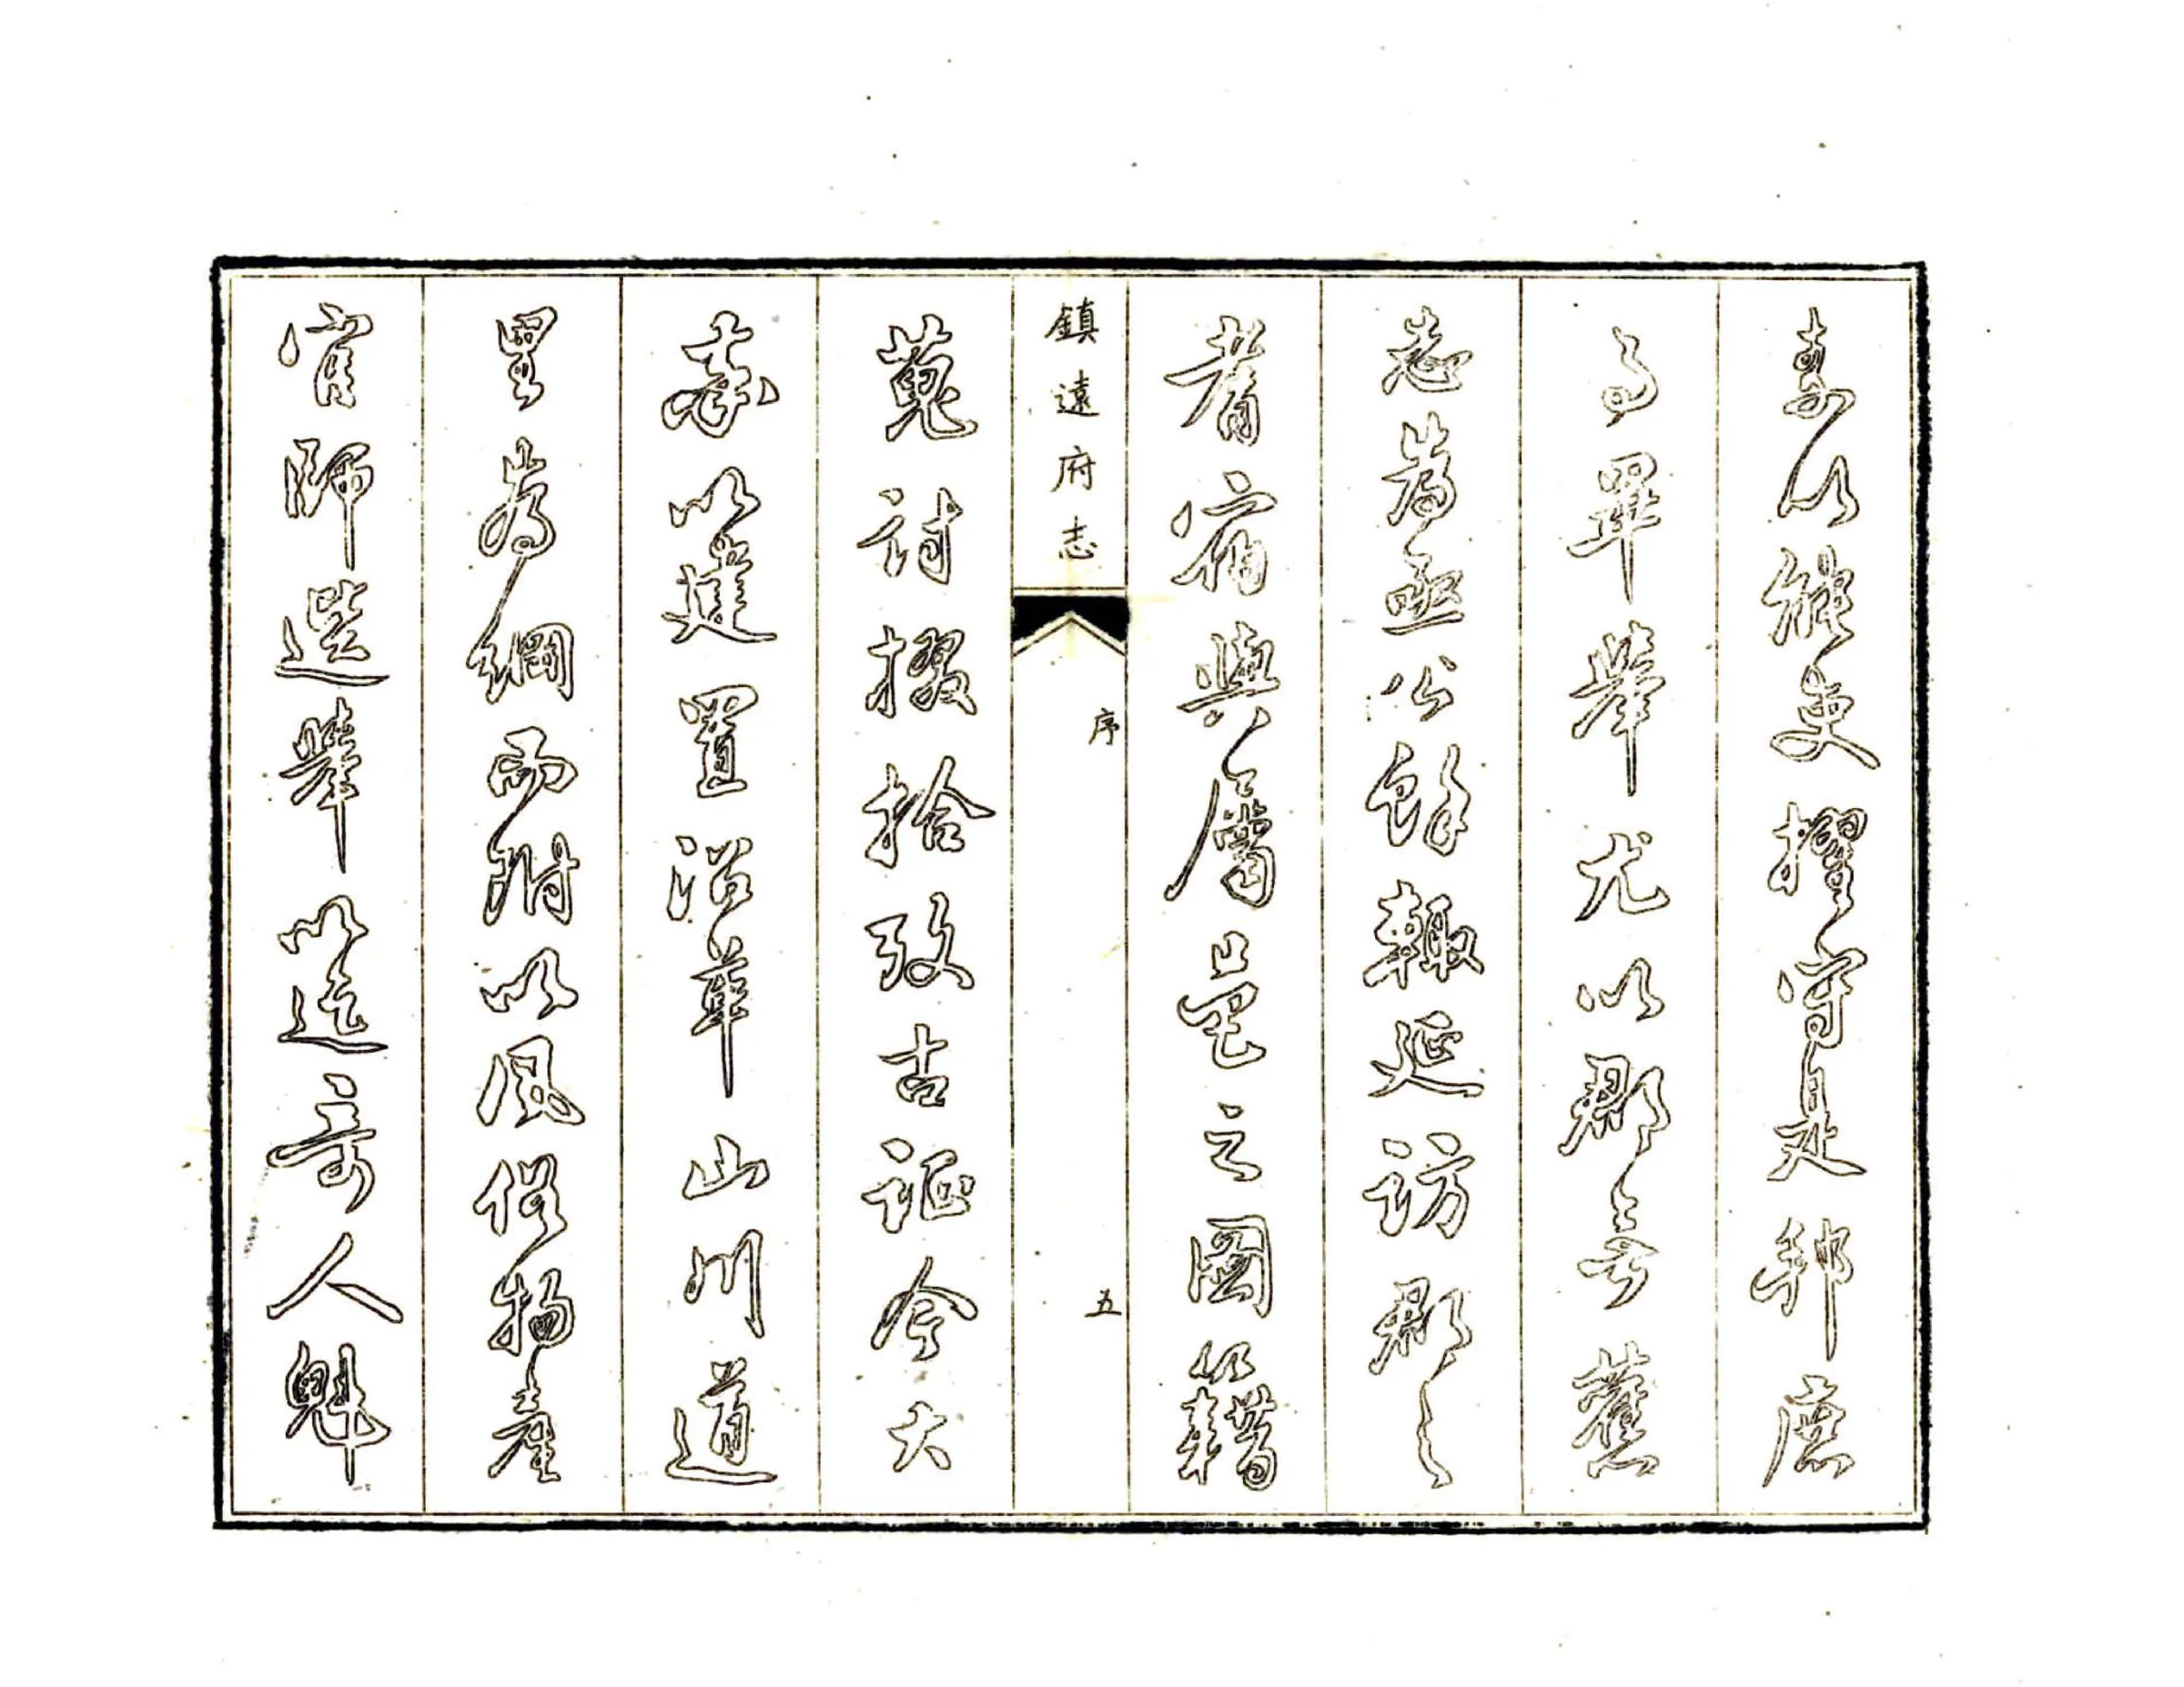 素以能吏擢守是邦庶
事畢舉尤以郡無舊
志為亟公餘輒延訪郡之
耆宿與屬邑之圖籍
鎮遠府志 序 五
蒐討掇拾攷古証今大
率以建置沿革山川道
里為綱而附以風俗物產
官師選舉以迄奇人魁